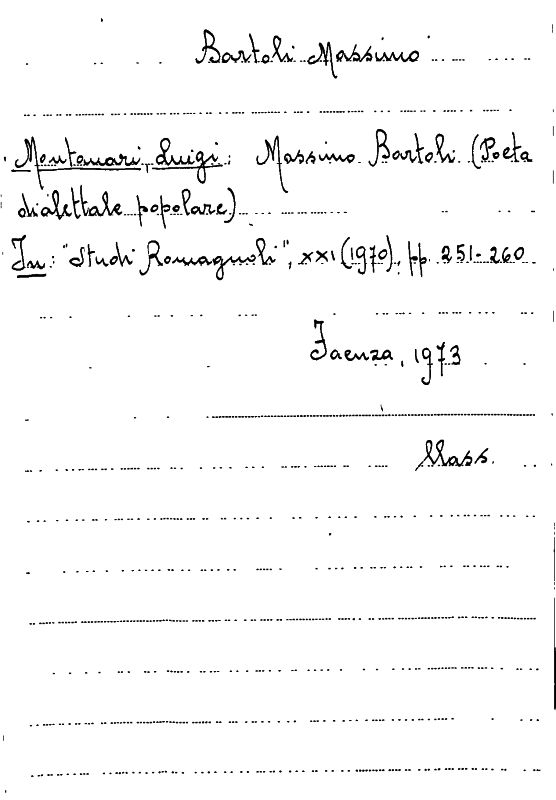 Bartoli Massimo
Montanari, Luigi: Massimo Bartoli (Poeta
dialettale popolare)
In: "Studi Romagnoli", XXI (1970), pp. 251-260
Faenza, 1973
Mass.